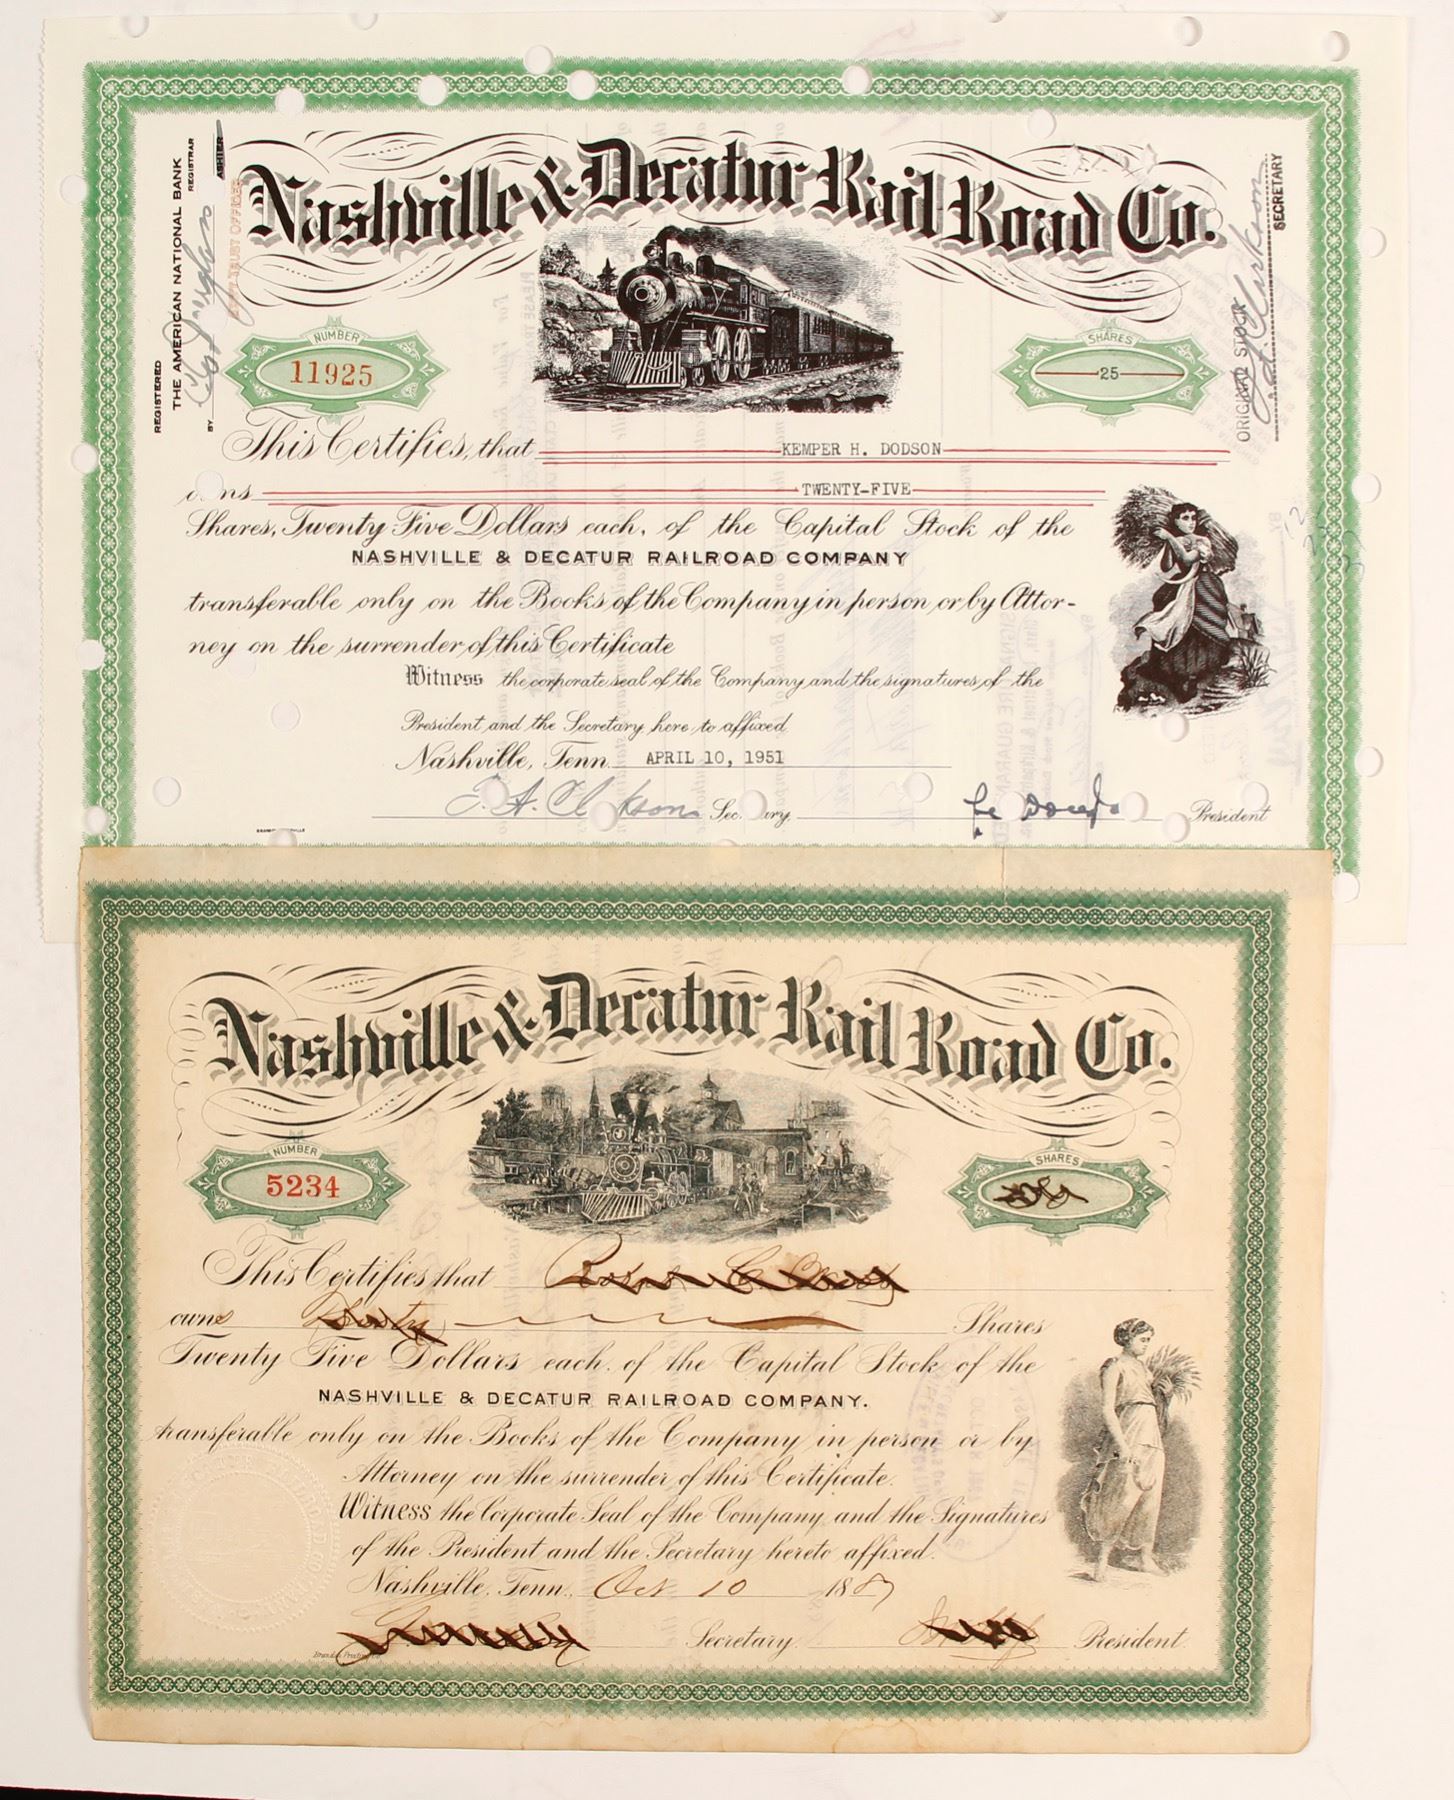 REGISTERED
THE AMERICAN NATIONAL BANK
REGISTRAR
BY
TRUST OFFICER
Nashville & Decatur Rail Road Co.
SECRETARY
ORIGINAL STOCK
NUMBER
11925
SHARES
25
This Certifies, that KEMPER H. DODSON
owns TWENTY-FIVE
Shares, Twenty Five Dollars each, of the Capital Stock of the
NASHVILLE & DECATUR RAILROAD COMPANY
transferable only on the Books of the Company in person or by Attor-
ney on the surrender of this Certificate
Witness the corporate seal of the Company and the signatures of the
President and the Secretary here to affixed
Nashville, Tenn. APRIL 10, 1951
Secretary.
President
Nashville & Decatur Rail Road Co.
NUMBER
5234
SHARES
This Certifies that
owns Shares
Twenty Five Dollars each. of the Capital Stock of the
NASHVILLE & DECATUR RAILROAD COMPANY.
transferable only on the Books of the Company in person or by
Attorney on the surrender of this Certificate.
Witness the Corporate Seal of the Company and the Signatures
of the President and the Secretary hereto affixed.
Nashville, Tenn., Oct 10 1887
Secretary.
President.